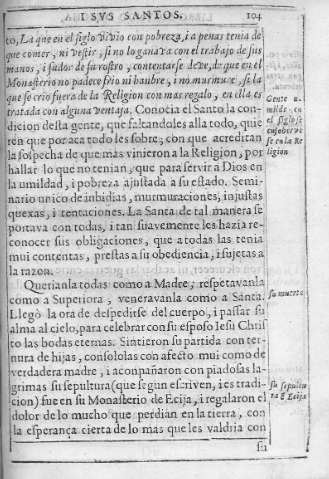 I SVS SANTOS. 104
to, La que en el siglo vivio con pobreza, i a penas tenia de
que comer, ni vestir, si no lo ganava con el trabajo de sus
manos, i sudor de su rostro, contentarse deve, de que en el
Monasterio no padece frio ni hanbre, i no murmure, si la
que se crio fuera de la Religion con mas regalo, en ella es
tratada con alguna ventaja. Conocia el Santo la con-
dicion desta gente, que faltandoles alla todo, quie
ren que por aca todo les sobre; con que acreditan
la sospecha de que mas vinieron a la Religion, por
hallar lo que no tenian, que para servir a Dios en
la umildad, i pobreza ajustada a su estado. Semi-
nario unico de inbidias, murmuraciones, injustas
quexas, i tentaciones. La Santa de tal manera se
portava con todas, i tan suavemente les hazia re-
conocer sus obligaciones, que a todas las tenia
mui contentas, prestas a su obediencia, i sujetas a
la razon.
Gente u
milde en
el siglo se
ensobervi
se en la Re
ligion
Querianla todas como a Madre, respetavanla
como a Superiora, veneravanla como a Santa.
Llegò la ora de despedirse del cuerpo, i passar su
alma al cielo, para celebrar con su esposo Iesu Chris
to las bodas eternas. Sintieron su partida con ter-
nura de hijas, consololas con afecto mui como de
verdadera madre, i aconpañaron con piadosas la-
grimas su sepultura (que segun escriven, i es tradi-
cion) fue en su Monasterio de Ecija, i regalaron el
dolor de lo mucho que perdian en la tierra, con
la esperança cierta de lo mas que les valdria con
su muerte
su sepultu
ra ē Ecija
su